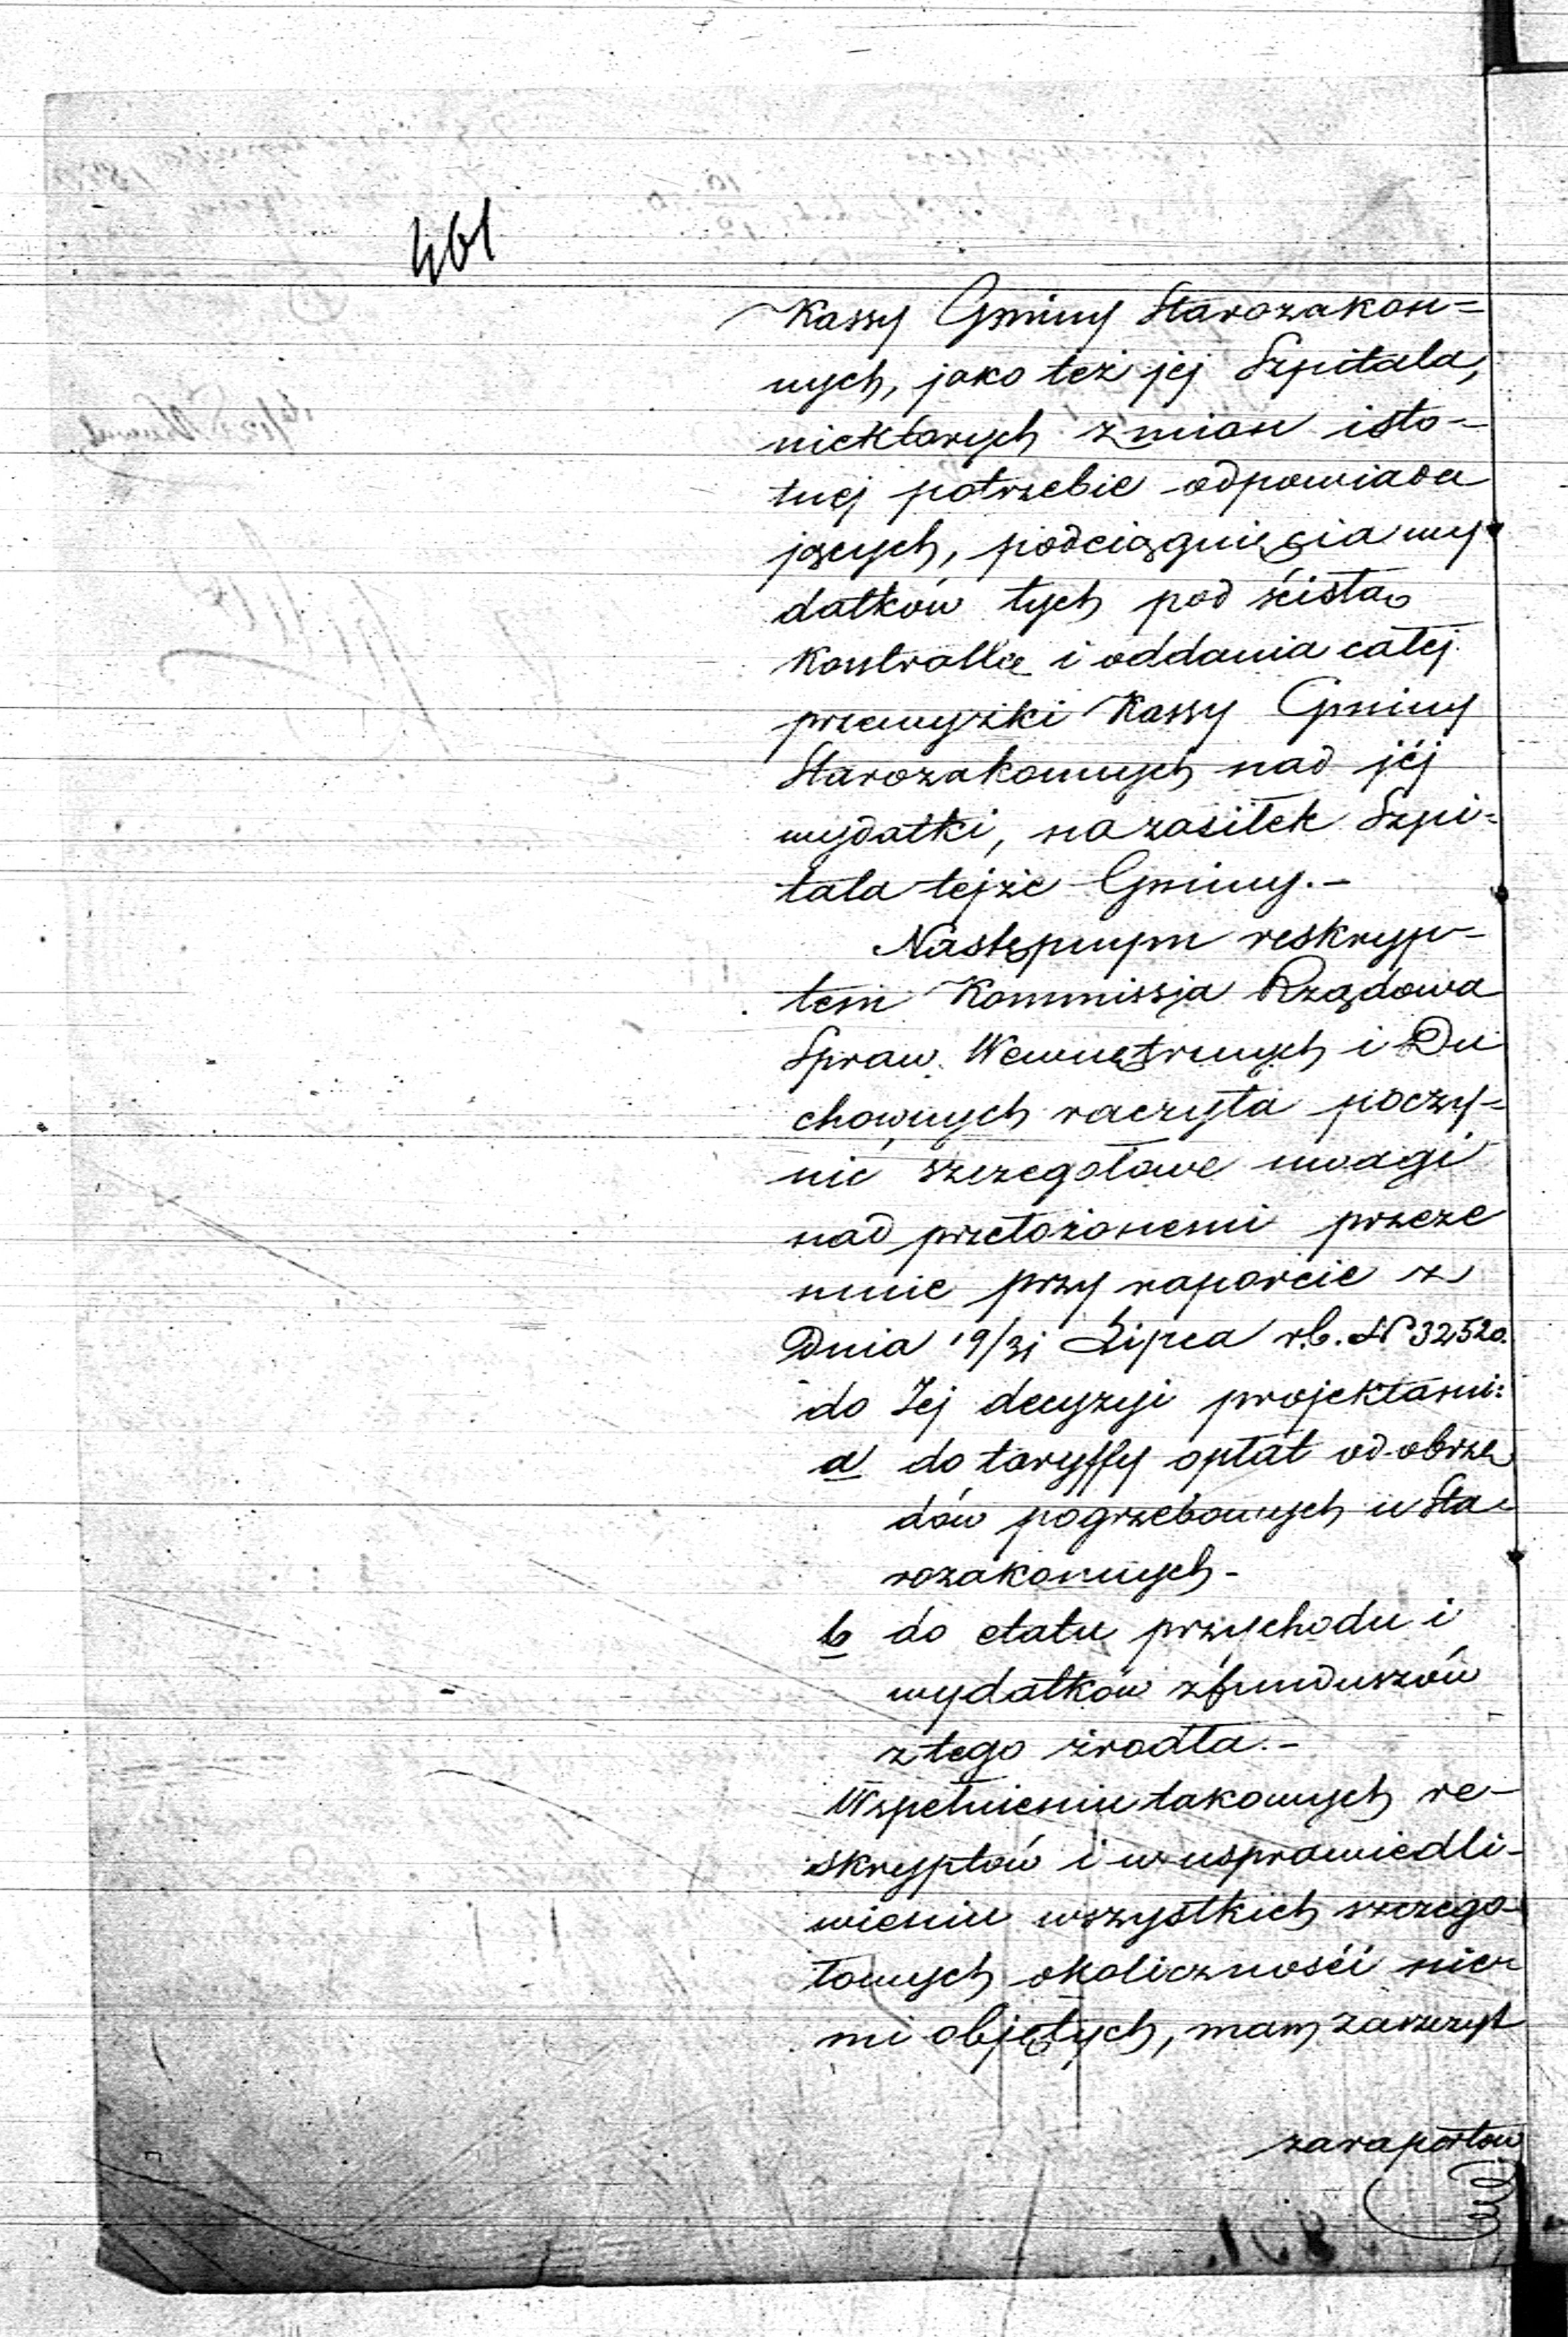 461
Kassy Gminy Starozakon=
nych, jako też jej Szpitala,
niektórych zmian isto-
tnej potrzebie odpowiada
jących, podciągnięcia wy
datków tych pod ścisłą
Kontrollę i oddania całej
przewyżki Kassy Gminy
Starozakonnych nad jéj
wydatki, na zasiłek Szpi=
tala tejże Gminy.-
Następnym reskryp-
tem Kommissja Rządowa
Spraw Wewnętrznych i Du
chownych raczyła poczy-
nić szczegółowe uwagi
nad przełożonemi przeze
mnie przy raporcie z
Dnia 19/31 Lipca r.b. N 32520.
do Jej decyzyi projektami:
a do taryffy opłat od obrzę
dów pogrzebowych u Sta-
rozakonnych-
b do etatu przychodu i
wydatków z funduszów
z tego źrodła.-
W spełnieniu takowych re-
skryptów i w usprawiedli-
wieniu wszystkich szczego-
łowych okoliczności nie-
mi objętych, mam zaszczyt
zaraportow